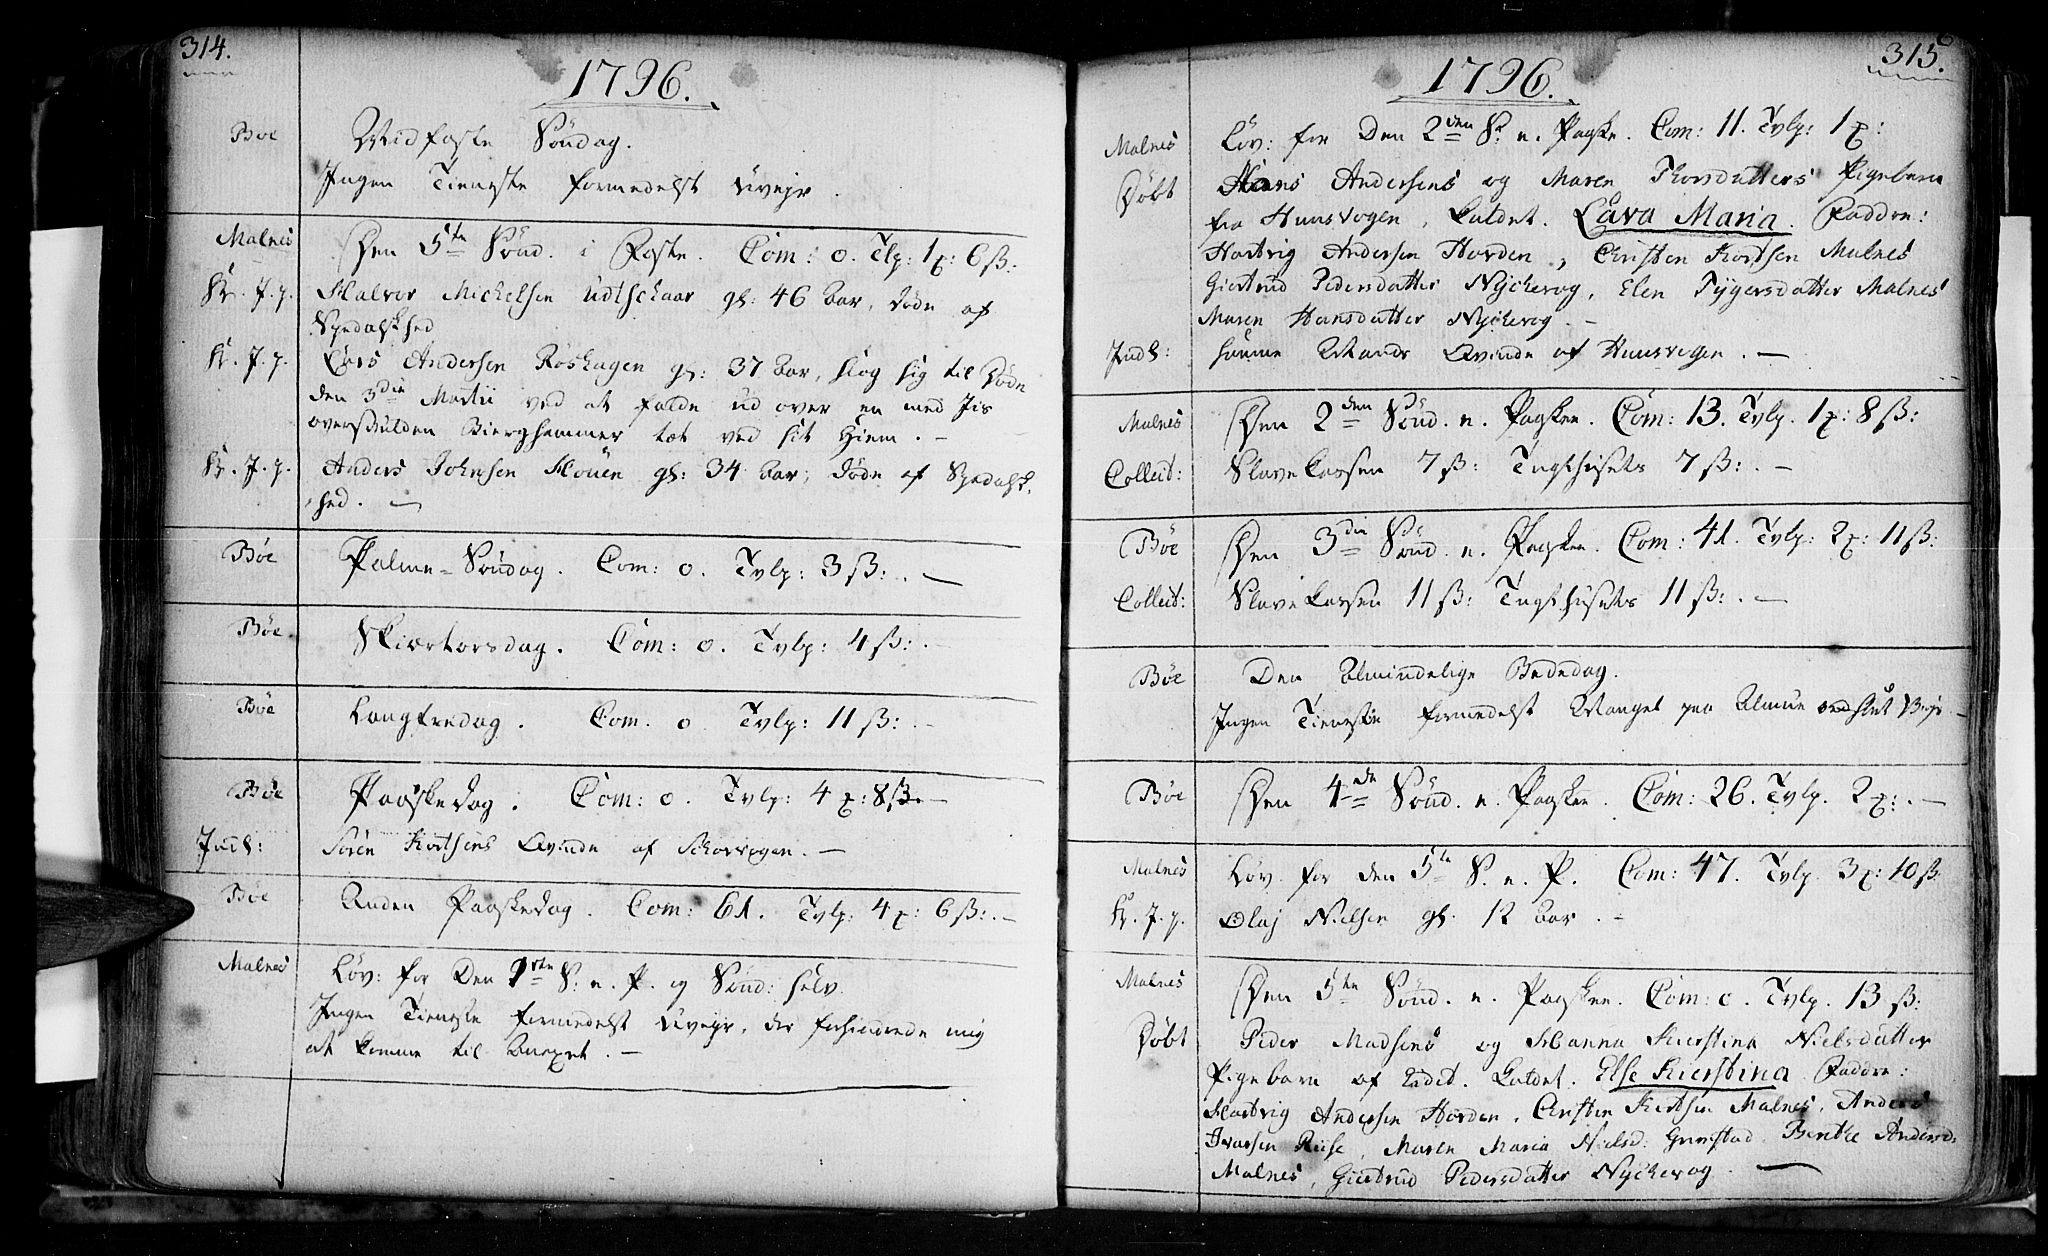 314.
1796.
Bøe Midfaste Söndag.
Ingen Tieneste formedelst Uvejr.
Malnes Den 5te Sönd. i Faste. Com: 0. Tvlp: 1 ꝶ: 6 ß:
Kr. J. p. Halvor Michelsen Udtschaar gl: 46 Aar, döde af
Spedalskhed
Kr. J. p. Lars Andersen Röshagen gl: 37 Aar, slog sig til Döde
den 3die Martii ved at falde ud over en med Jis
overskulden Bierghammer tæt ved sit Hiem. -
Kr. J. p. Anders Johnsen Houen gl: 34 Aar, döde af Spedalsk-
hed. -
Bøe Palme-Söndag. Com: 0. Tvlp: 3 ß: -
Bøe Skiærtorsdag. Com: 0. Tvlp: 4 ß: -
Bøe Langfredag. Com. 0. Tvlp: 11 ß: -
Bøe Paaskedag. Com: 0. Tvlp: 4 ꝶ: 8 ß. -
Indl: Sören Kortsens Qvinde af Schorvogen. -
Bøe Anden Paaskedag. Com: 61. Tvlp: 4 ꝶ: 6 ß: -
Malnes Löv: for Den 1ste S: e. P. og Sönd: selv
Ingen Tieneste formedelst Uvejr, der forhindrede mig
at komme til Annexet. -
315.
1796.
Malnes Löv: for Den 2den S: e. Paaske. Com: 11. Tvlp: 1 ꝶ:
Döbt Hans Andersens og Maren Thorsdatters Pigebarn
fra Hunsvogen, kaldet. Lava Maria. Faddre:
Hartvig Andersen Horden, Christen Kortsen Malnes
Giertrud Pedersdatter Nyckevog, Elen Tygersdatter Malnes
Maren Hansdatter Nyckevog. -
Indl: samme Mands Qvinde af Hunsvogen. -
Malnes Den 2den Sönd. e. Paaske. Com: 13. Tvlp. 1 ꝶ: 8 ß:
Collect: Slavekassen 7 ß: Tugthusets 7 ß: -
Bøe Den 3die Sönd. e. Paaske. Com: 41. Tvlp: 2 ꝶ: 11 ß:
Collect: Slavekassen 11 ß: Tugthusets 11 ß: -
Bøe Den Almindelige Bededag.
Ingen Tieneste formedelst Mangel paa Almue ved slet Vejr -
Bøe Den 4de Sönd. e. Paaske. Com: 26. Tvlp. 2 ꝶ: -
Malnes Löv. for den 5te S. e. P. Com: 47. Tvlp. 3 ꝶ: 10 ß.
Kr. J. p. Olaj Nielsen gl. 12 Aar. -
Malnes Den 5te Sönd. e. Paaske. Com: 0. Tvlp. 13 ß:
Döbt Peder Madsens og Hanna Kierstina Nielsdatter
Pigebarn af kaldet. Else Kierstina Faddre:
Hartvig Andersen Horden, Christen Kortsen Malnes, Anders
Ivarsen Riise, Maren Maria Nielsd: Grimstad Birthe Andersd:
Malnes, Giertrud Pedersdatter Nyckevog. -